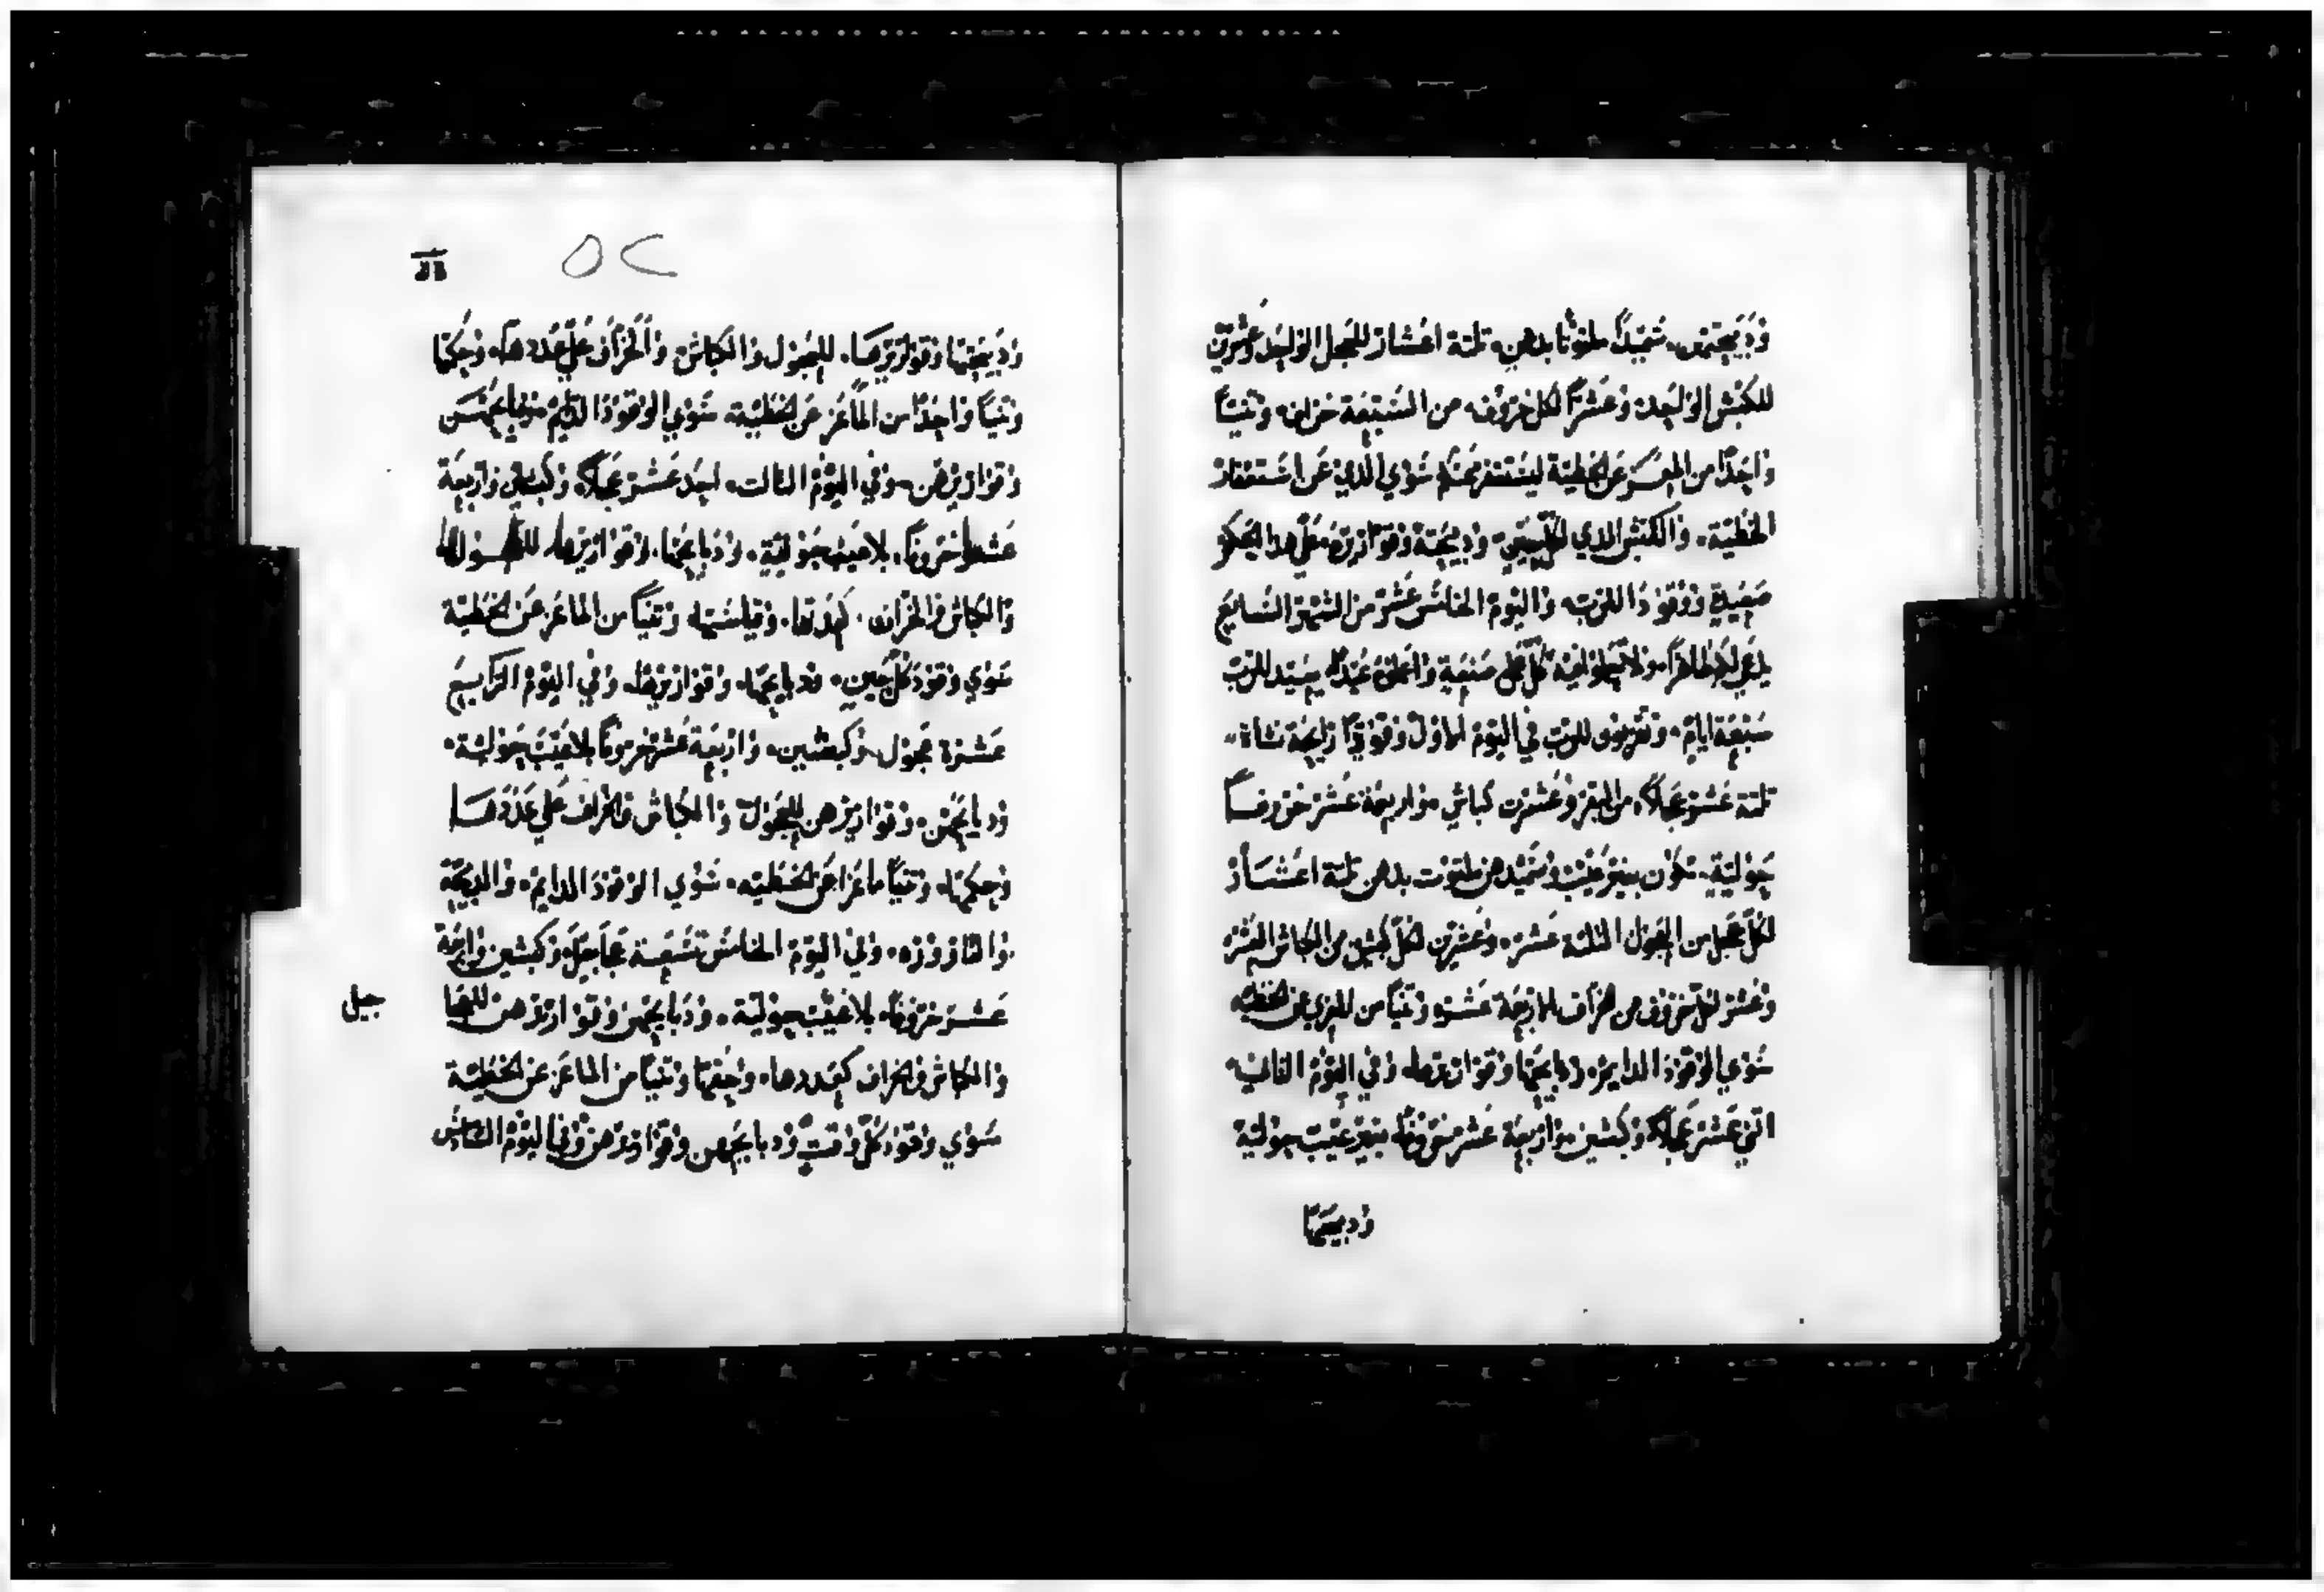 وذبيحتهن سميدًا ملتوتا بدهن ثلثة اعشار للعجل الواحد وعشرين
للكبش الواحد وعشرًا لكل خروف من السبعة خراف وتنيًا
واحدًا من المعز عن الخطية ليستغفر عنكم سوي الذي عن استغفار
الخطية والكبش الذي وذبيحته وقوازيزه علي هذا
صعيدة ووقودًا للرب واليوم الخامس عشر من الشهر السابع
يدعي لكم طاهرًا ولا تعملوا فيه كل عمل صنعة واعملوه عيدًا يعيد للرب
سبعة ايام وتقربون للرب في اليوم الاول وقودًا رايحة نشاة
ثلثة عشر عجلًا من البقر وعشرت كباش واربعة عشر خروفًا
حولية تكون بغير عيب وسميدهن ملتوت بدهن ثلثة اعشار
لكل عجل من العجول الثلثة عشر وعشرين لكل كبش من الكباش العشرة
وعشر لكل خروف من الخراف الاربعة عشر وتنيًا من المعزي عن الخطية
سوي الوقود الدايم وذبايحها وقوازيزها وفي اليوم الثاني
اثني عشر عجلًا وكبشين واربعة عشر خروفًا بغير عيب حولية
وذبيحتها
٥٢
وذبيحتها وقوازيزها للعجول والكباش والخراف علي عددها وحكمها
وتنيًا واحدًا من الماعز عن الخطية سوي الوقود الدايم وذبايحهن
وقوازيزهن وفي اليوم الثالث احد عشر عجلًا وكبشين واربعة
عشر خروفًا بلا عيب حولية وذبايحها وقوازيزها للعجول
والكباش والخراف كعدتها وقياسها وتنيًا من الماعز عن الخطية
سوي وقود كل حين وذبايحها وقوازيزها وفي اليوم الرابع
عشرة عجول وكبشين واربعة عشر خروفًا بلا عيب حولية
وذبايحهن وقوازيزهن للعجول والكباش والخراف علي عددها
وحكمها وتنيًا ماعزا عن الخطية سوي الوقود الدايم والذبيحة
والقازوزه وفي اليوم الخامس تسعة عجاجيل وكبشين واربعة
عشر خروفًا بلا عيب حولية وذبايحهن وقوازيزهن للعجا
جيل
والكباش والخراف كعددها وحقها وتنيًا من الماعز عن الخطية
سوي وقود كل وقت وذبايحهن وقوازيزهن وفي اليوم السادس